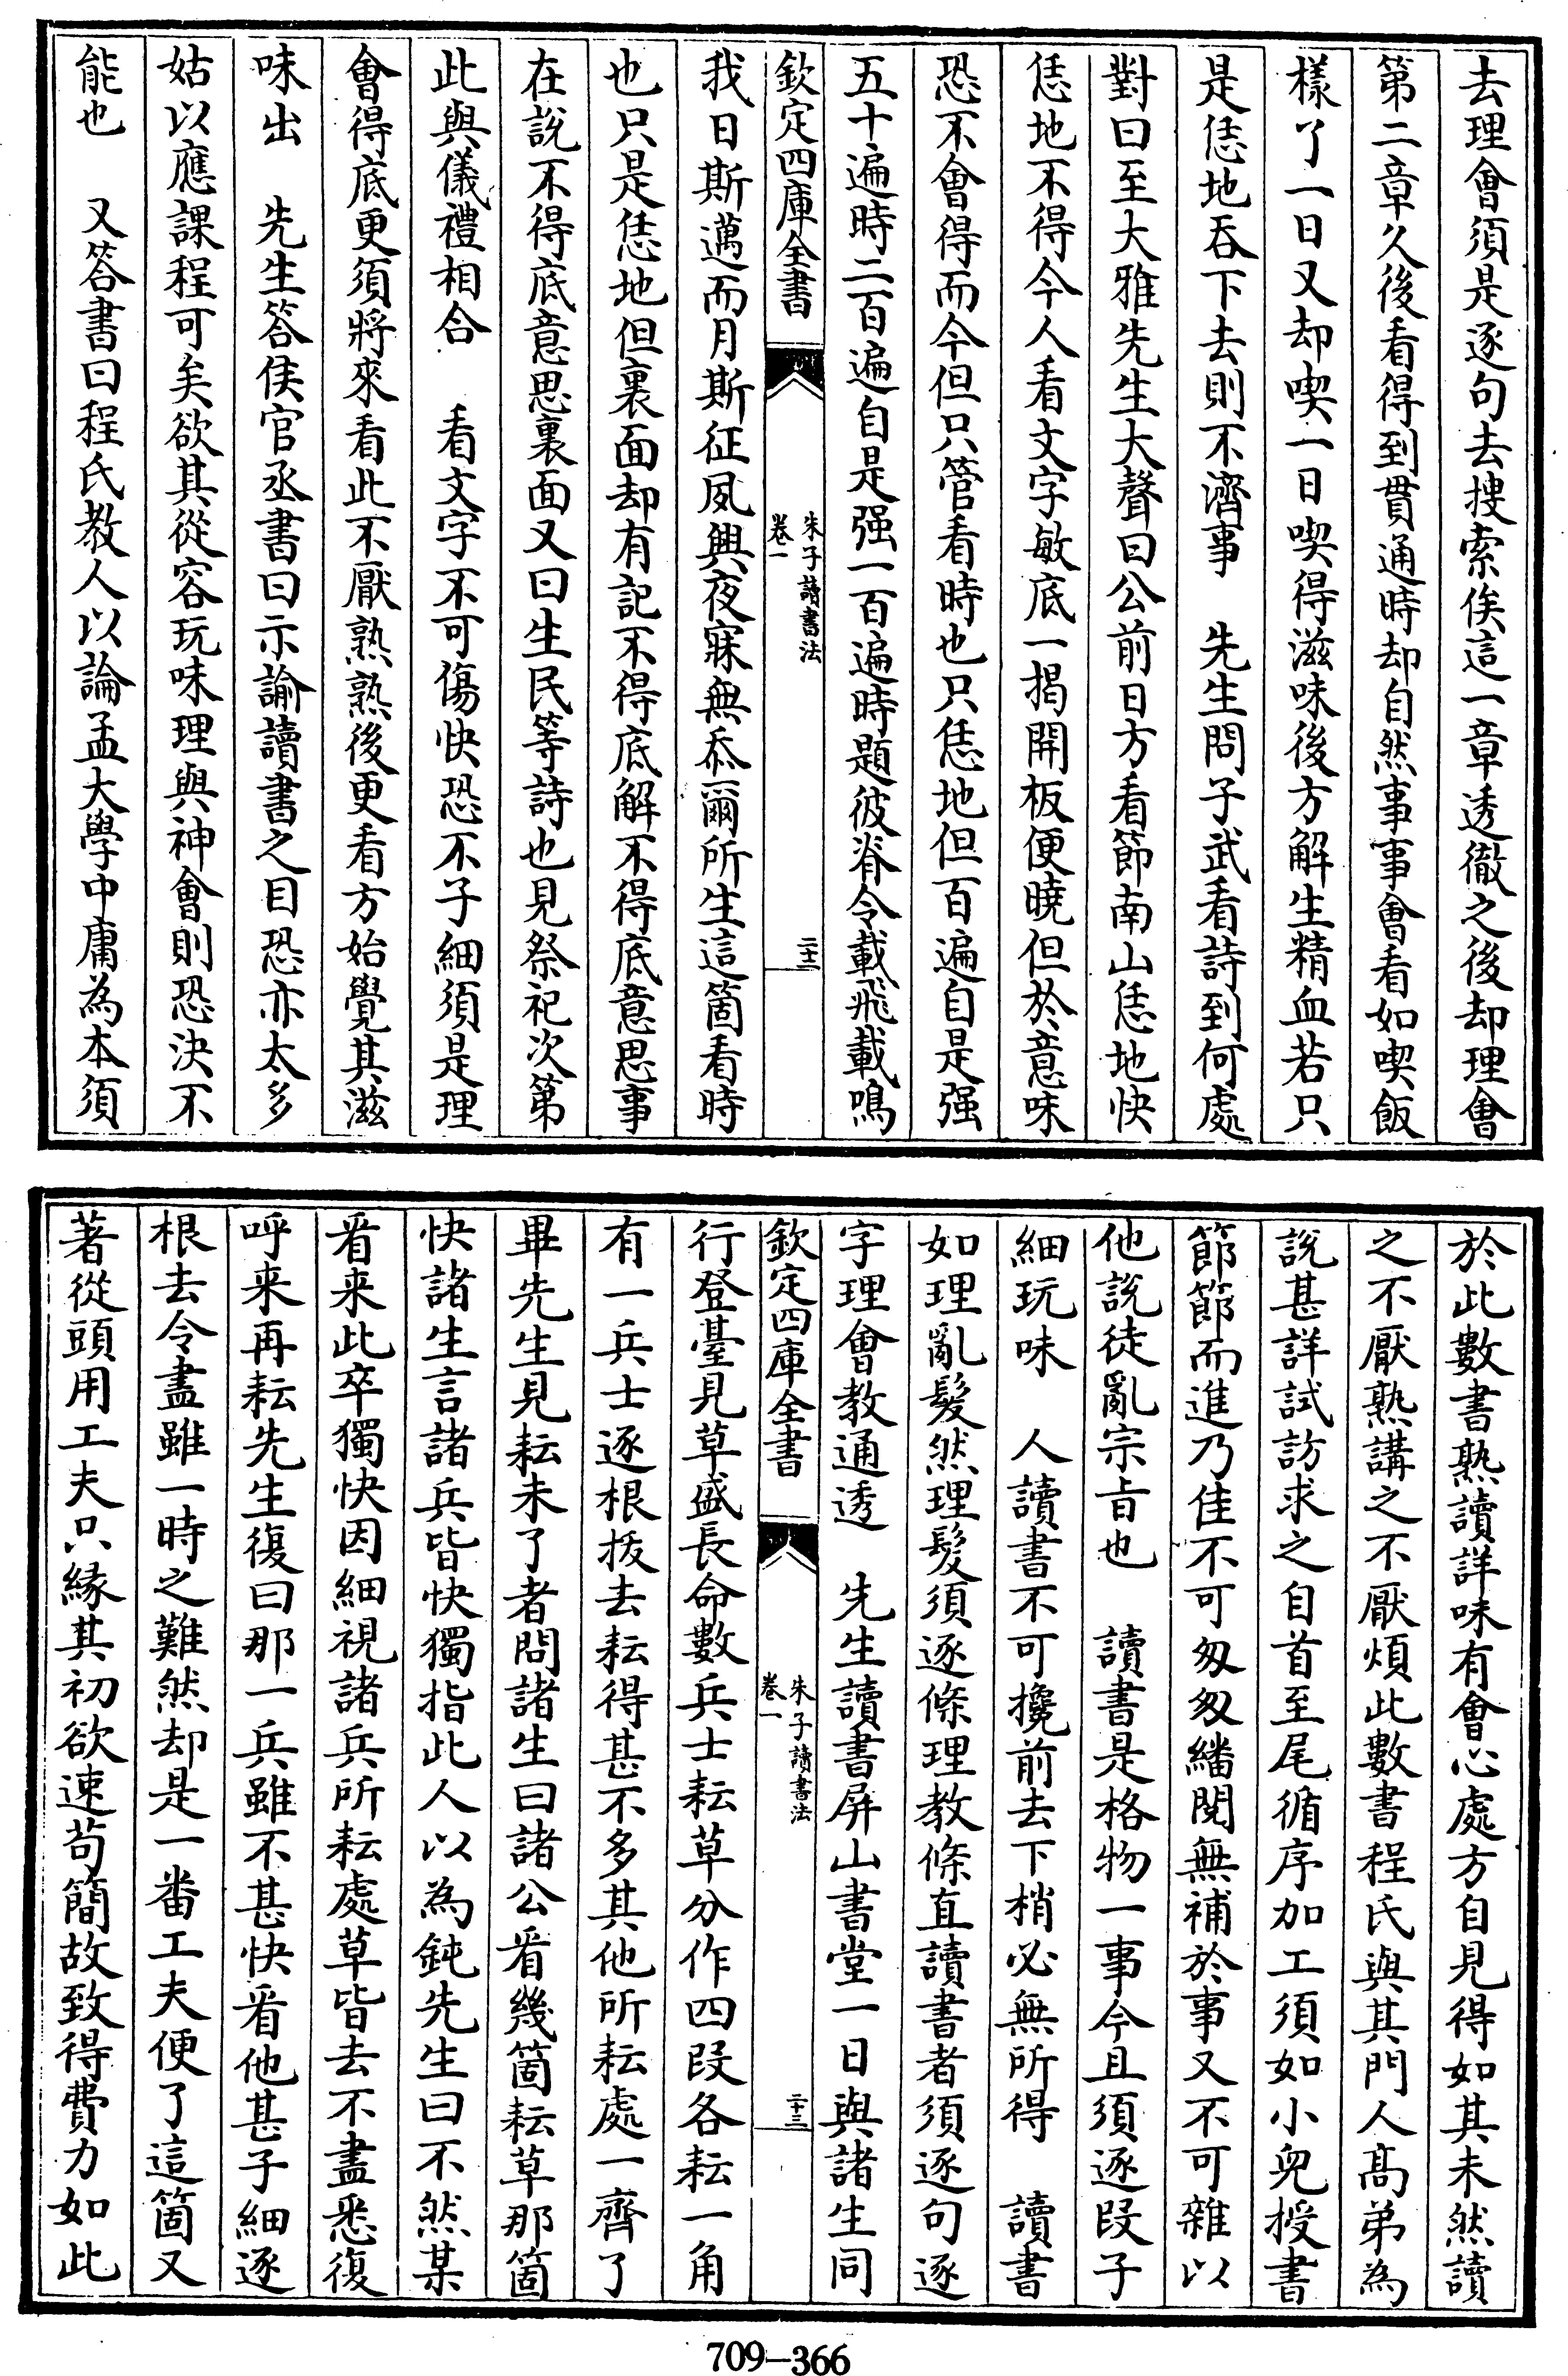 去理會須是逐句去搜索俟這一章透徹之後却理會
第二章久後看得到貫通時却自然事事會看如喫飯
樣丫一日又却喫一日喫得滋味後方解生精血若只
是恁地吞下去則不濟事　先生問子武看詩到何處
對曰至大雅先生大聲曰公前日方看節南山恁地快
恁地不得今人看文字敏底一揭開板便曉但於意味
恐不會得而今但只管看時也只恁地但百遍自是强
五十遍時二百遍自是强一百遍時題彼脊令載飛載鳴
欽定四庫全書
朱子讀書法
卷一
二十二
我日斯邁而月斯征夙興夜寐無忝爾所生這箇看時
也只是恁地但裏面却有記不得底解不得底意思事
在說不得底意思裏面又曰生民等詩也見祭祀次第
此與儀禮相合　看文字不可傷快恐不子細須是理
會得底更須將來看此不厭熟熟後更看方始覺其滋
味出　先生答侯官丞書曰示諭讀書之目恐亦太多
姑以應課程可矣欲其從容玩味理與神會則恐決不
能也　又答書曰程氏教人以論孟大學中庸為本須
於此數書熟讀詳味有會心處方自見得如其未然讀
之不厭熟講之不厭煩此數書程氏與其門人高弟為
說甚詳試訪求之自首至尾循序加工須如小兒授書
節節而進乃佳不可匆匆繙閱無補於事又不可雜以
他說徒亂宗旨也　讀書是格物一事今且須逐段子
細玩味　人讀書不可攙前去下梢必無所得　讀書
如理亂髮然理髮須逐條理教條直讀書者須逐句逐
字理會教通透　先生讀書屏山書堂一日與諸生同
欽定四庫全書
朱子讀書法
卷一
二十三
行登臺見草盛長命數兵士耘草分作四段各耘一角
有一兵士逐根拔去耘得甚不多其他所耘處一齊了
畢先生見耘未了者問諸生曰諸公看幾箇耘草那箇
快諸生言諸兵皆快獨指此人以為鈍先生曰不然某
看来此卒獨快因細視諸兵所耘處草皆去不盡悉復
呼来再耘先生復曰那一兵雖不甚快看他甚子細逐
根去令盡雖一時之難然却是一番工夫便了這箇又
著從頭用工夫只緣其初欲速苟簡故致得費力如此
709-366